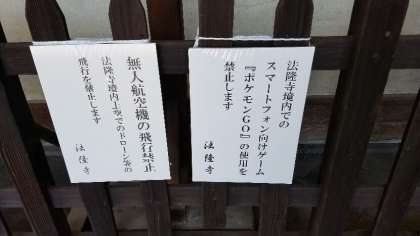 法隆寺境内での
スマートフォン向けゲーム
『ポケモンGO』の使用を
禁止します
法隆寺
無人航空機の飛行禁止
法隆寺境内上空でのドローン等の
飛行を禁止します
法隆寺